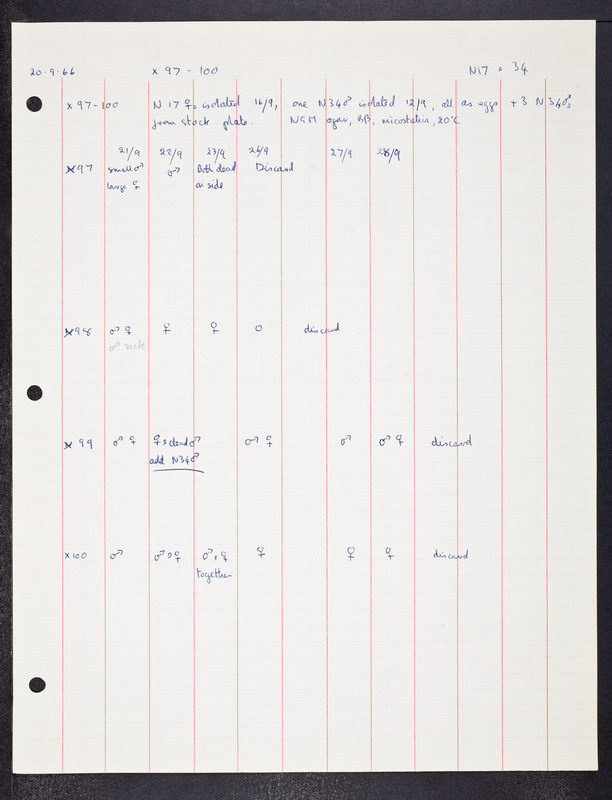 20.9.66 x 97 - 100 N17 x 34
x 97-100 N 17 ♀s isolated 16/9, one N34♂ isolated 12/9, all as eggs + 3 N34♂s
from stock plate. NGM agar, BB, nicostatin, 20°C
21/9 22/9 23/9 26/9 27/9 28/9
x97 small ♂ ♂ Both dead Discard
large ♀ on side
x98 ♂ ♀ ♀ ♀ O discard
♂ sick
x 99 ♂ ♀ ♀, dead ♂ ♂ ♀ ♂ ♂ ♀ discard
add N34♂
x100 ♂ ♂, ♀ ♂, ♀ ♀ ♀ ♀ discard
together